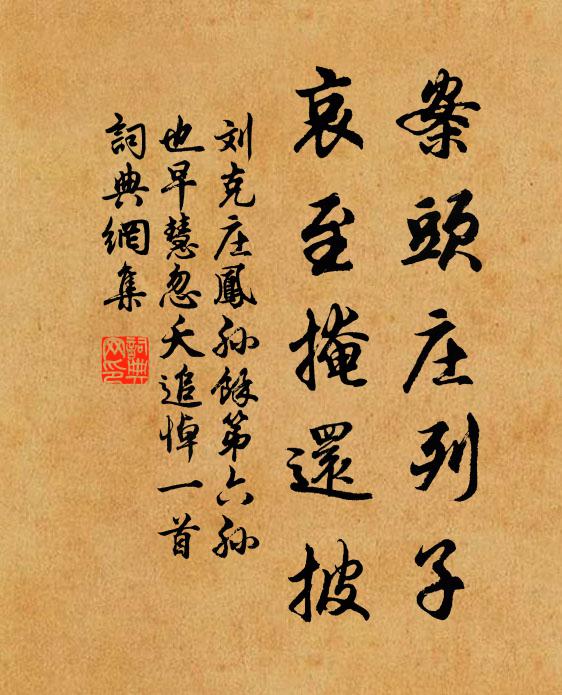 案頭庄列子
哀至掩還披
刘克庄鳳孙餘第六孙
也早慧忽夭追悼一首
詞典網集
詞典
网印